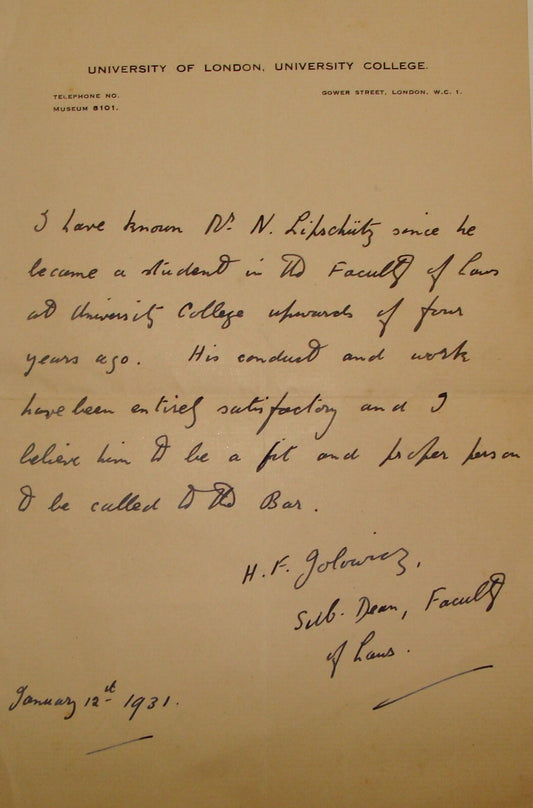 UNIVERSITY OF LONDON, UNIVERSITY COLLEGE.
TELEPHONE NO.
MUSEUM 8101.
GOWER STREET, LONDON, W.C. 1.
I have known Mr. N. Lipschütz since he
became a student in the Faculty of Laws
at University College upwards of four
years ago. His conduct and work
have been entirely satisfactory and I
believe him to be a fit and proper person
to be called to the Bar.
H. F. Jolowicz,
Sub. Dean, Faculty
of Laws.
January 12th 1931.